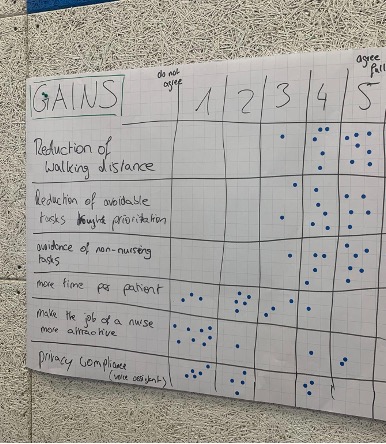 do not
agree
agree
full
GAINS 1 2 3 4 5
Reduction of
walking distance
Reduction of avoidable
tasks prioritization
avoidance of non-nursing
tasks
more time per patient
make the job of a nurse
more attractive
Privacy Compliance
(voice assistant)